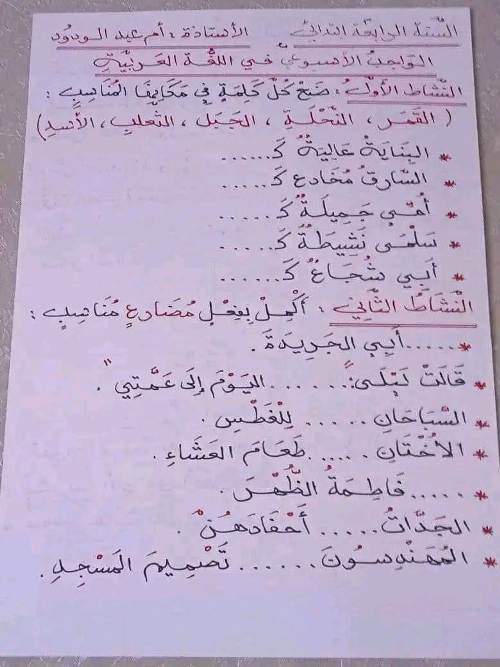 السَّنة الرابعة ابتدائي    الأستاذة : أم عبد الودود
الواجب الأسبوعي في اللّغة العَرَبيَّةِ
النَّشاط الأوَّل : ضَعْ كُلَّ كَلِمَةٍ فِي مَكَانِهَا المُنَاسِبِ :
( القَمَر ، النَّحْلَةِ ، الجَبَل ، الثَّعلبِ ، الأسدِ )
* البِنَايَةُ عَالِيَةٌ كَـ......
* السَّارقُ مُخَادع كَـ.....
* أُمِّي جَمِيلَةٌ كَـ.....
* سَلْمَى نَشِيطَةٌ كَـ.....
* أَبِي شُجَاعٌ كَـ......
النَّشَاطُ الثَّانِي : أَكْمِلْ بِفِعْلٍ مُضَارعٍ مُنَاسِبٍ :
* ......أَبِي الجَرِيدَةَ .
* قَالَتْ لَيْلَى : " ....... اليَوْمَ إِلَى عَمَّتِي " .
* السَّبَاحَانِ ...... لِلْغَطْسِ .
* الأُخْتَانِ ...... طَعَامَ العَشَاءِ .
* ...... فَاطِمَةُ الظُّهْرَ .
* الجَدَّاتُ ..... أَحْفَادَهُنَّ .
* المُهَنْدِسُونَ ....... تَصْمِيمَ المَسْجِدِ .